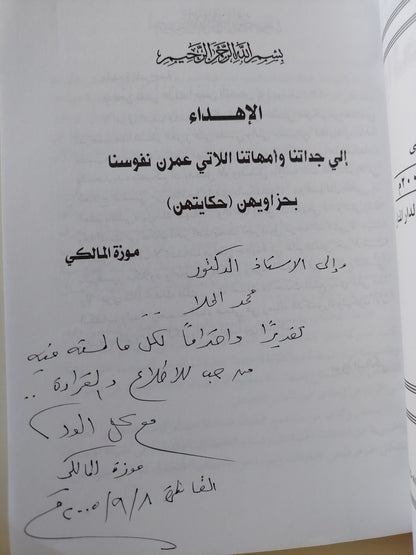 بسم الله الرحمن الرحيم
الإهداء
إلي جداتنا وأمهاتنا اللاتي عمرن نفوسنا
بحزاويهن (حكايتهن)
موزة المالكي
وإلى الاستاذ الدكتور
محمد الحلا ..
تقديرًا واحترامًا لكل ما لمسته فيه
من حب للاطلاع والقراءة ..
مع كل الود
موزة المالكي
القاهرة ٢٠٠٥/٩/٨م